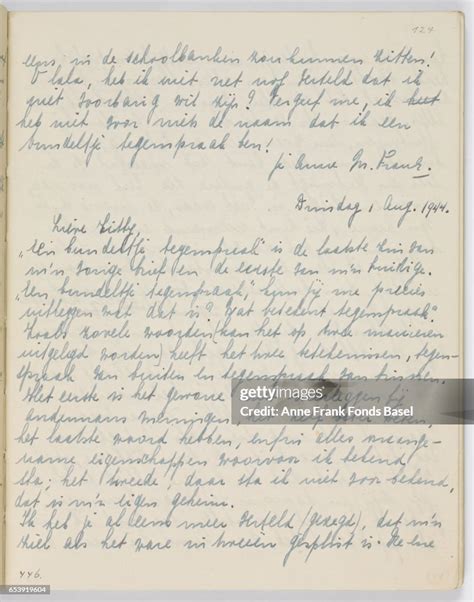 124
eens, in de schoolbanken kan kunnen zitten!
O lala, heb ik niet net nog verteld dat ik
niet voorbarig wil zijn? Vergeef me, ik heet
heb niet voor niets de naam dat ik een
bundeltje tegenspraak ben!
je Anne M. Frank.
Dinsdag 1 Aug. 1944.
Lieve Kitty,
„Een bundeltje tegenspraak" is de laatste zin van
m'n vorige brief en de eerste van m'n huidige.
„Een bundeltje tegenspraak," kun jij me precies
uitleggen wat dat is? Wat betekent tegenspraak?
Zoals zovele woorden (kan het op twee manieren
uitgelegd worden) heeft het twee betekenissen, tegen-
spraak van buiten en tegenspraak van binnen.
Het eerste is het gewone
andermans meningen, het
het laatste woord hebben, enfin alles onaange-
name eigenschappen waarvoor ik bekend
sta; het tweede, daar sta ik niet voor bekend,
dat is m'n eigen geheim.
Ik heb je al eens meer verteld (gezegd), dat m'n
ziel als het ware in tweeën gesplitst is. De ene
446.
gettyimages
Credit: Anne Frank Fonds Basel
653919604